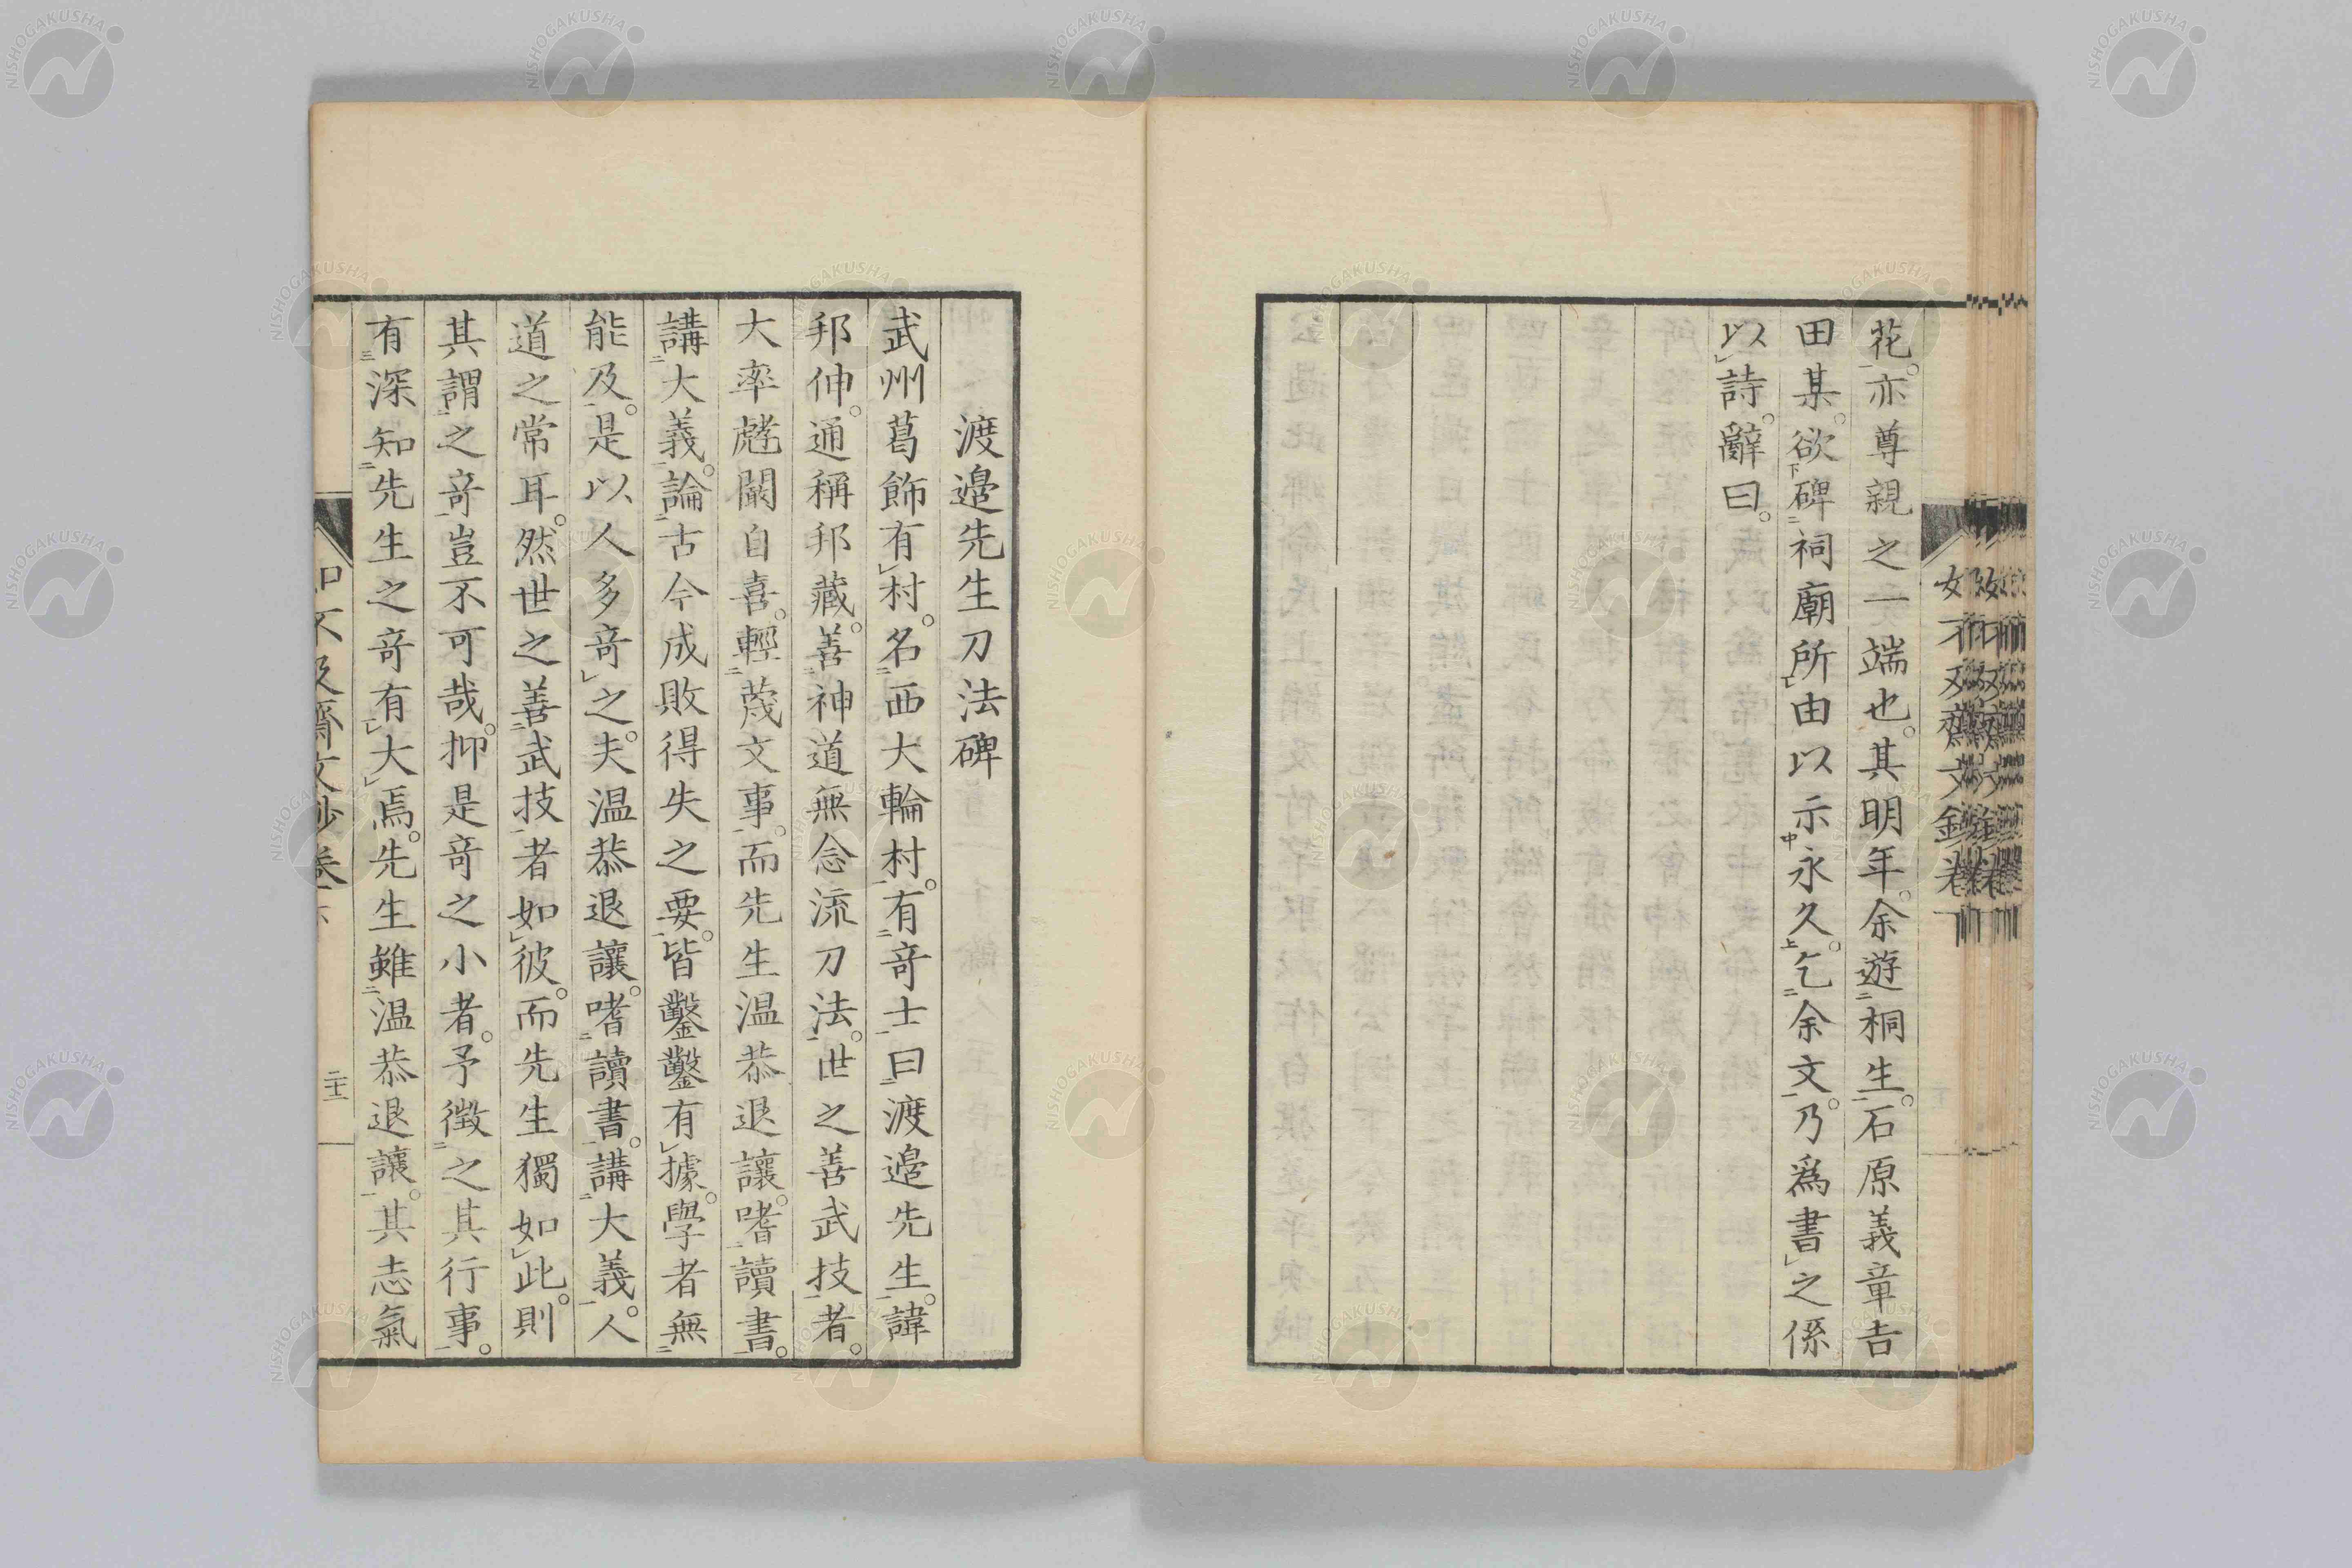 花。亦尊親之一端也。其明年。余遊桐生。石原義章吉
田某。欲碑祠廟所由以示永久。乞余文。乃爲書之係
以詩。辭曰。
渡邉先生刀法碑
武州葛飾有村。名西大輪村。有竒士曰渡邉先生。諱
邦伸。通稱邦藏。善神道無念流刀法。世之善武技者。
大率麤闞自喜。輕蔑文事。而先生温恭退讓。嗜讀書。
講大義。論古今成敗得失之要。皆鑿鑿有據。學者無
能及。是以人多竒之。夫温恭退讓。嗜讀書。講大義。人
道之常耳。然世之善武技者如彼。而先生獨如此。則
其謂之竒。豈不可哉。抑是竒之小者。予徴之其行事。
有深知先生之竒有大焉。先生雖温恭退讓。其志氣
二十一
NISHOGAKUSHA